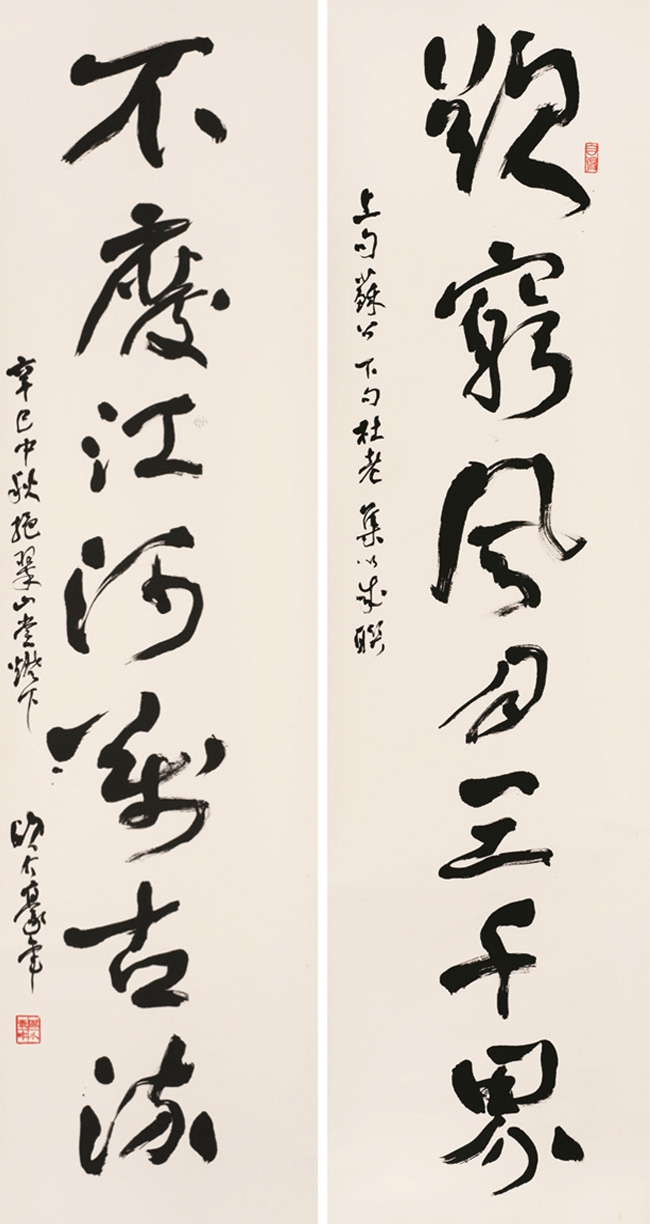 欲窮風月三千界
上句蘇公下句杜老集以成聯
不廢江河萬古流
辛巳中秋挹翠山堂燈下
豪年